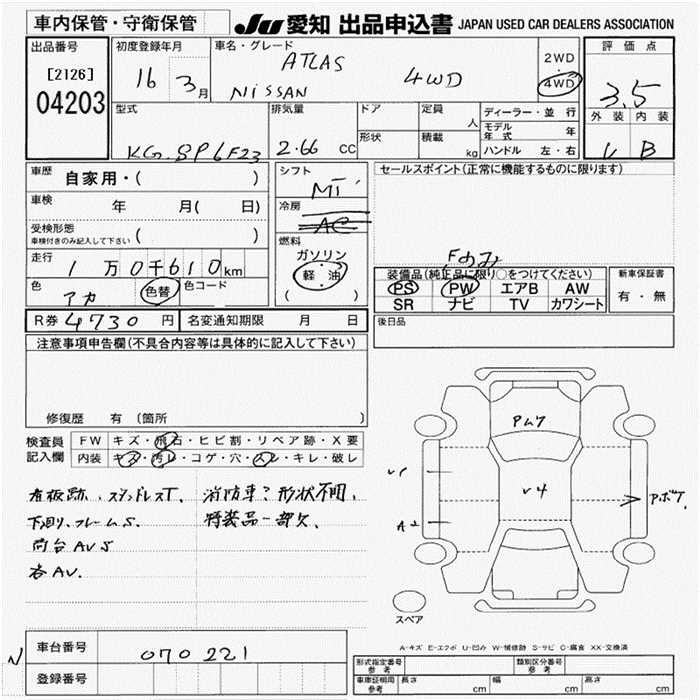 車内保管・守衛保管
JU 愛知 出品申込書 JAPAN USED CAR DEALERS ASSOCIATION
出品番号
[2126]
04203
初度登録年月
16 3月
車名・グレード
ATLAS 4WD
NISSAN
2WD
・
4WD
評価点
3.5
外装 内装
B
型式
KG-SP6F23
排気量
2.66 CC
ドア
形状
定員 人
積載 kg
ディーラー・並行
モデル年式 年
ハンドル 左・右
車歴 自家用・( )
車検 年 月( 日)
受検形態
車検付きのみ記入して下さい ( )
走行
1万0千610km
色 アカ 色替 色コード
シフト
MT
冷房
AC
燃料
ガソリン
軽・油
( )
セールスポイント(正常に機能するものに限ります)
Fのみ
装備品(純正品に限り○をつけてください)
PS PW エアB AW
SR ナビ TV カワシート
新車保証書
有・無
R券 4730円 名変通知期限 月 日
後日品
注意事項申告欄(不具合内容等は具体的に記入して下さい)
修復歴 有 〔箇所 〕
検査員
記入欄
FW キズ・飛石・ヒビ割・リペア跡・X要
内装 キズ・汚レ・コゲ・穴・スレ・キレ・破レ
看板跡、スタンドレスT、
下廻り、フレームS、
荷台AVS
各AV.
消防車?形状不明、
特装品一部欠、
Pムケ
V4
A2
Pボケ
スペア
A-キズ E-エクボ U-凹み W-補修跡 S-サビ C-腐食 XX-交換済
N
車台番号 070221
登録番号
形式指定番号
参考
類別区分番号
参考
車庫証明用
参考
長さ cm
幅 cm
高さ cm